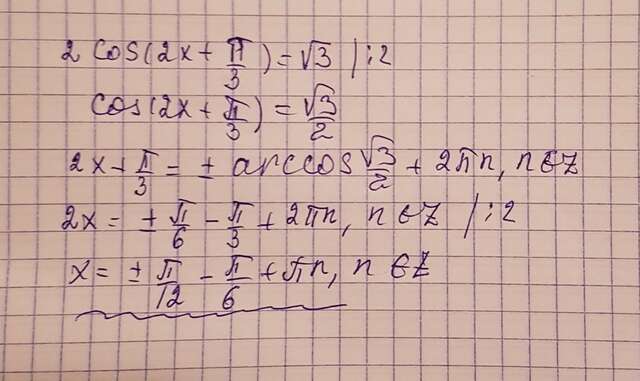 2 cos(2x + π/3) = √3 | :2
cos(2x + π/3) = √3/2
2x + π/3 = ± arccos √3/2 + 2πn, n ∈ Z
2x = ± π/6 - π/3 + 2πn, n ∈ Z | :2
x = ± π/12 - π/6 + πn, n ∈ Z